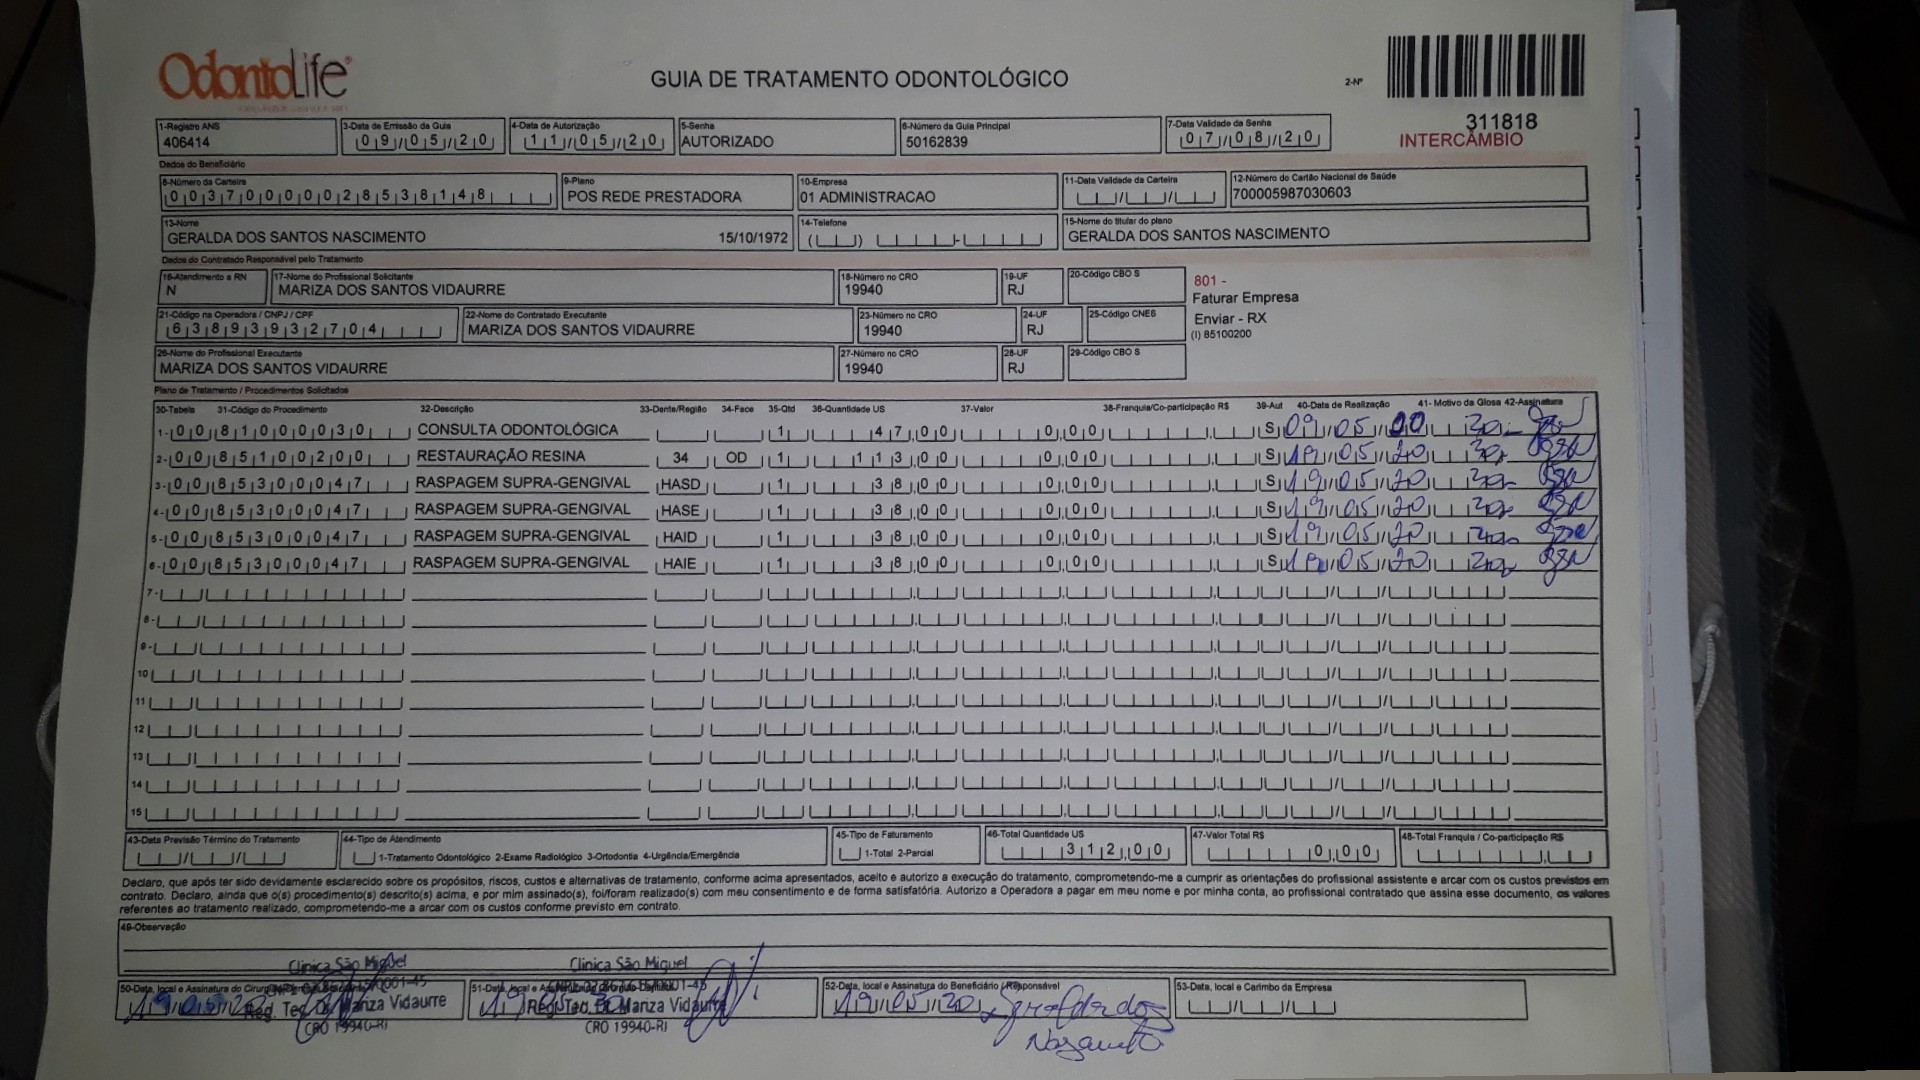 OdontoLife
GUIA DE TRATAMENTO ODONTOLÓGICO
2-Nº
311818
INTERCÂMBIO
1-Registro ANS 3-Data de Emissão da Guia 4-Data de Autorização 5-Senha 6-Número da Guia Principal 7-Data Validade da Senha
406414 09/05/20 11/05/20 AUTORIZADO 50162839 07/08/20
Dados do Beneficiário
8-Número da Carteira 9-Plano 10-Empresa 11-Data Validade da Carteira 12-Número do Cartão Nacional de Saúde
00370000028538148 POS REDE PRESTADORA 01 ADMINISTRACAO 700005987030603
13-Nome 14-Telefone 15-Nome do titular do plano
GERALDA DOS SANTOS NASCIMENTO 15/10/1972 GERALDA DOS SANTOS NASCIMENTO
Dados do Contratado Responsável pelo Tratamento
16-Atendimento a RN 17-Nome do Profissional Solicitante 18-Número no CRO 19-UF 20-Código CBO S
N MARIZA DOS SANTOS VIDAURRE 19940 RJ
801 -
Faturar Empresa
Enviar - RX
(I) 85100200
21-Código na Operadora / CNPJ / CPF 22-Nome do Contratado Executante 23-Número no CRO 24-UF 25-Código CNES
63893932704 MARIZA DOS SANTOS VIDAURRE 19940 RJ
26-Nome do Profissional Executante 27-Número no CRO 28-UF 29-Código CBO S
MARIZA DOS SANTOS VIDAURRE 19940 RJ
Plano de Tratamento / Procedimentos Solicitados
30-Tabela 31-Código do Procedimento 32-Descrição 33-Dente/Região 34-Face 35-Qtd 36-Quantidade US 37-Valor 38-Franquia/Co-participação R$ 39-Aut 40-Data de Realização 41- Motivo da Glosa 42-Assinatura
1- 00 81000030 CONSULTA ODONTOLÓGICA 1 47,00 0,00 S 09/05/20
2- 00 85100200 RESTAURAÇÃO RESINA 34 OD 1 113,00 0,00 S 19/05/20
3- 00 85300047 RASPAGEM SUPRA-GENGIVAL HASD 1 38,00 0,00 S 19/05/20
4- 00 85300047 RASPAGEM SUPRA-GENGIVAL HASE 1 38,00 0,00 S 19/05/20
5- 00 85300047 RASPAGEM SUPRA-GENGIVAL HAID 1 38,00 0,00 S 19/05/20
6- 00 85300047 RASPAGEM SUPRA-GENGIVAL HAIE 1 38,00 0,00 S 19/05/20
7-
8-
9-
10
11
12
13
14
15
43-Data Previsão Término do Tratamento 44-Tipo de Atendimento 45-Tipo de Faturamento 46-Total Quantidade US 47-Valor Total R$ 48-Total Franquia / Co-participação R$
1-Tratamento Odontológico 2-Exame Radiológico 3-Ortodontia 4-Urgência/Emergência 1-Total 2-Parcial 312,00 0,00
Declaro, que após ter sido devidamente esclarecido sobre os propósitos, riscos, custos e alternativas de tratamento, conforme acima apresentados, aceito e autorizo a execução do tratamento, comprometendo-me a cumprir as orientações do profissional assistente e arcar com os custos previstos em
contrato. Declaro, ainda que o(s) procedimento(s) descrito(s) acima, e por mim assinado(s), foi/foram realizado(s) com meu consentimento e de forma satisfatória. Autorizo a Operadora a pagar em meu nome e por minha conta, ao profissional contratado que assina esse documento, os valores
referentes ao tratamento realizado, comprometendo-me a arcar com os custos conforme previsto em contrato.
49-Observação
Clinica São Miguel Clinica São Miguel
50-Data, local e Assinatura do 51-Data, local e 52-Data, local e Assinatura do Beneficiário / Responsável 53-Data, local e Carimbo da Empresa
19/05/20 Reg. Tec. Dr. Mariza Vidaurre 19 Reg. Tec. Dr. Mariza Vidaurre 19/05/20 Geralda dos
CRO 19940-RJ CRO 19940-RJ Nascimento